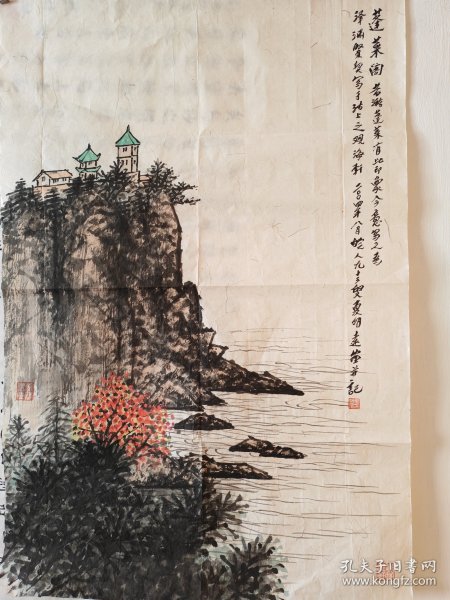 蓬莱阁 昔游蓬莱有此印象今意写之
泽涵贤契写于沽上之观海轩 二〇〇四年八月 人九十三叟夏明远并记
孔夫子旧书网
www.kongfz.com